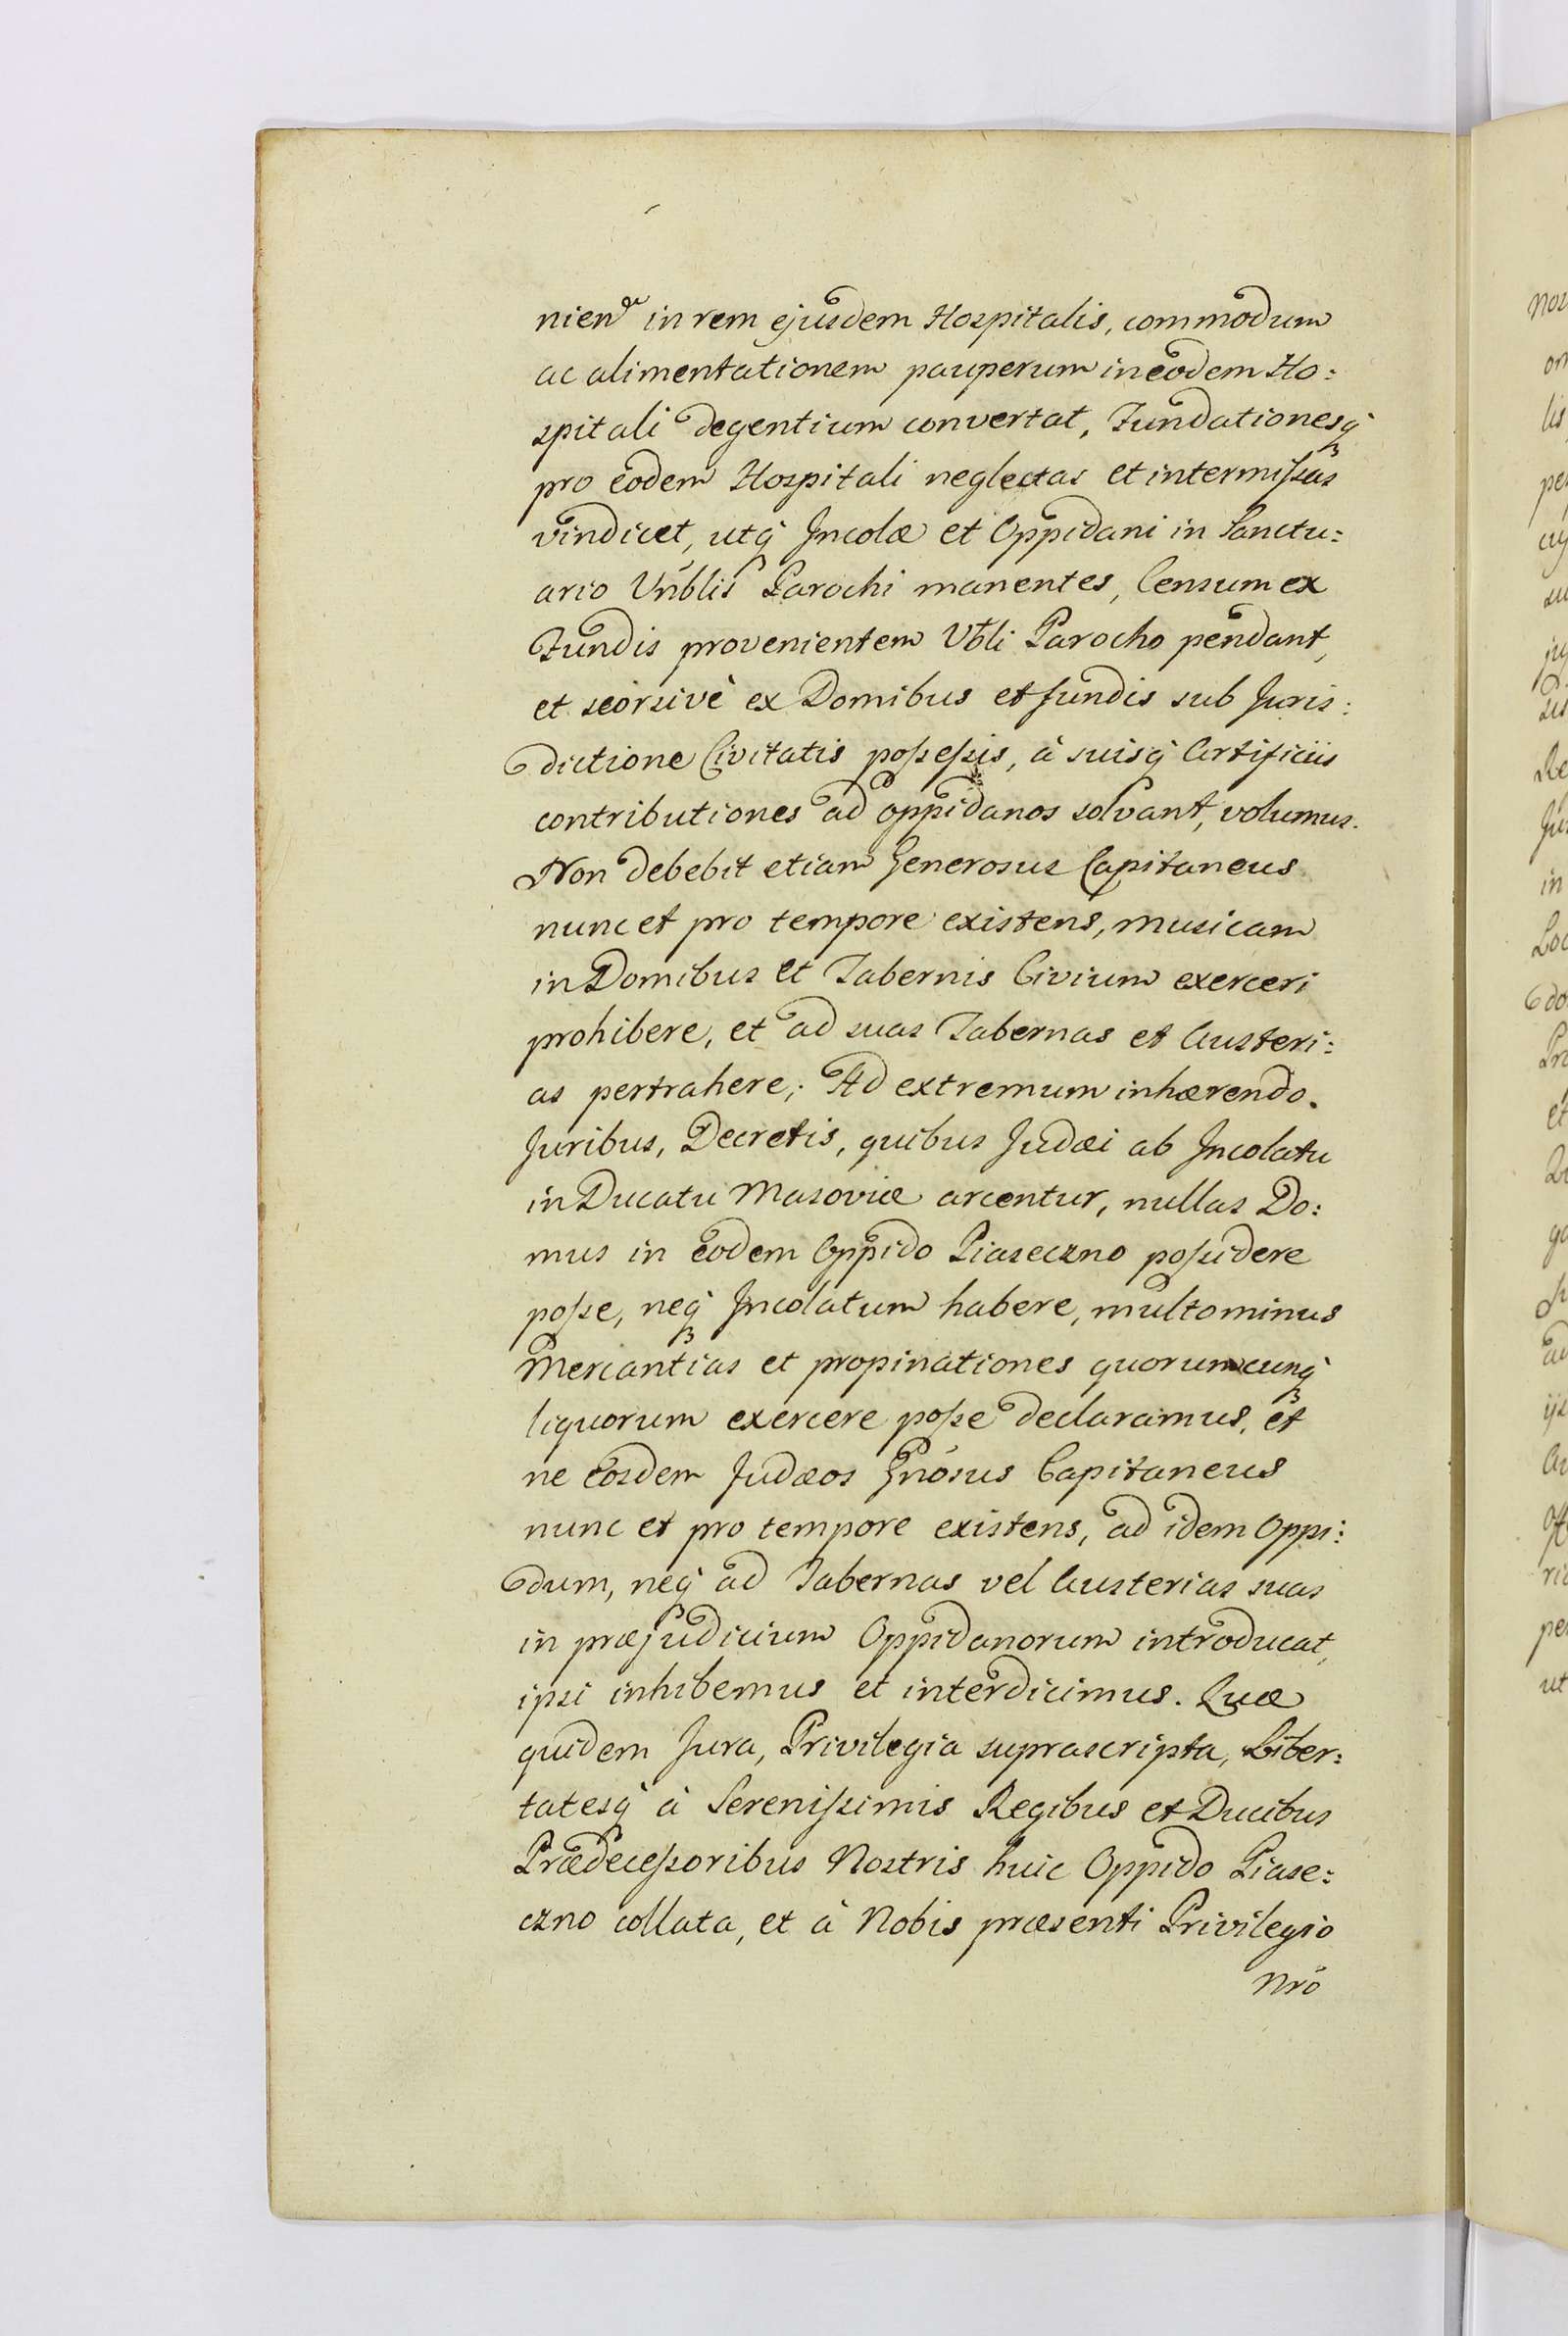 nien͠ in rem ejusdem Hospitalis, commodum
ac alimentationem pauperum in eodem Ho:
spitali degentium convertat, Fundationesq̃
pro eodem Hospitali neglectas et intermissas
vindicet, utq̃ Incolæ et Oppidani in Sanctu:
ario Vnblis Parochi manentes, Censum ex
Fundis provenientem Vbli Parocho pendant,
et seorsivè ex Domibus et fundis sub Juris:
dictione Civitatis possessis, à suisq̃ Artificiis
contributiones ad oppidanos solvant, volumus.
Non debebit etiam Generosus Capitaneus
nunc et pro tempore existens, musicam
in Domibus et Tabernis Civium exerceri
prohibere, et ad suas Tabernas et Austeri:
as pertrahere; Ad extremum inhærendo
Juribus, Decretis, quibus Judæi ab Incolatu
in Ducatu Masoviæ arcentur, nullas Do:
mus in eodem Oppido Piaseczno possidere
posse, neq̃ Incolatum habere, multominus
Mercantias et propinationes quorumcunq̃
liquorum exercere posse declaramus, et
ne eosdem Judæos Gnosus Capitaneus
nunc et pro tempore existens, ad idem Oppi:
dum, neq̃ ad Tabernas vel Austerias suas
in præjudicium Oppidanorum introducat,
ipsi inhibemus et interdicimus. Quæ
quidem Jura, Privilegia suprascripta, Liber:
tatesq̃ à Serenissimis Regibus et Ducibus
Prædecessoribus Nostris huic Oppido Piase:
czno collata, et à Nobis præsenti Privilegio
Nrõ